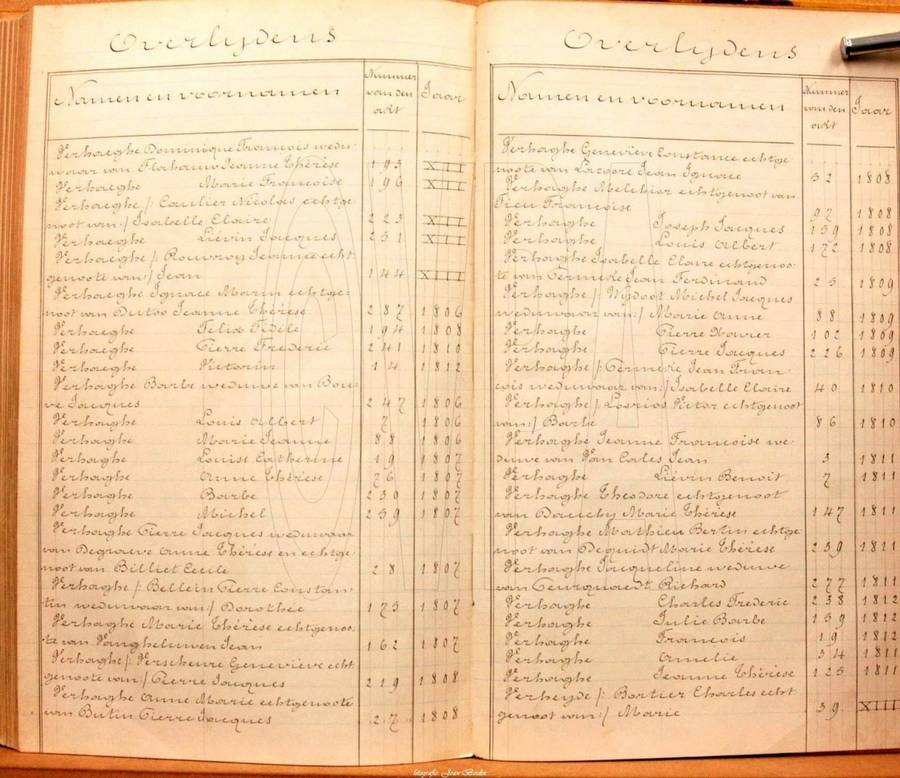 Overlijdens
Namen en voornamen
Nummer van den akt
Jaar
Verhaeghe Dominique Francois wedu-
waar van Flahauw Jeanne Thérèse 193 XIII
Verhaeghe Marie Francoise 196 XIII
Verhaeghe /: Caulier Nicolas echtge-
noot van :/ Isabelle Claire 223 XIII
Verhaeghe Liévin Jacques 231 XIII
Verhaeghe /: Rouvroy Jeanne echt-
genoote van :/ Jean 144 XIII
Verhaeghe Ignace Marin echtge-
noot van Dutoo Jeanne Thérèse 287 1806
Verhaeghe Felix Fidèle 194 1808
Verhaeghe Pierre Frederic 241 1810
Verhaeghe Victorin 14 1812
Verhaeghe Barbe weduwe van
Jacques 247 1806
Verhaghe Louis Albert 7 1806
Verhaghe Marie Jeanne 88 1806
Verhaghe Louise Catherine 19 1807
Verhaghe Anne Thérèse 76 1807
Verhaghe Barbe 230 1807
Verhaghe Michel 239 1807
Verhaghe Pierre Jacques weduwaar
van Degraeve Anne Thérèse en echtge-
noot van Billiet Cecile 28 1807
Verhaghe /: Bellein Pierre Constan-
tin weduwaar van :/ Dorothée 173 1807
Verhaghe Marie Thérèse echtgenoo-
te van Vangheluwen Jean 162 1807
Verhaghe /: Verscheure Geneviève echt-
genoote van :/ Pierre Jacques 219 1808
Verhaghe Anne Marie echtgenoote
van Butin Pierre Jacques 27 1808
Overlijdens
Namen en voornamen
Nummer van den akt
Jaar
Verhaghe Geneviève Constance echtge-
noote van Jean Ignace 52 1808
Verhaghe Melchior echtgenoot van
Françoise 92 1808
Verhaghe Joseph Jacques 159 1808
Verhaghe Louis Albert 172 1808
Verhaghe Isabelle Claire echtgenoo-
te van Cermeie Jean Ferdinand 25 1809
Verhaghe /: Wydoot Michel Jacques
weduwaar van :/ Marie Anne 88 1809
Verhaghe Pierre Xavier 102 1809
Verhaghe Pierre Jacques 226 1809
Verhaghe /: Cermeie Jean Fran-
cois weduwaar van :/ Isabelle Claire 40 1810
Verhaghe /: Losrios Victor echtgenoot
van :/ Barbe 86 1810
Verhaghe Jeanne Francoise we-
duwe van Van Cales Jean 3 1811
Verhaghe Liévin Benoit 7 1811
Verhaghe Theodore echtgenoot
van Dauchy Marie Thérèse 147 1811
Verhaghe Mathieu Bertin echtge-
noot van Dequidt Marie Thérèse 239 1811
Verhaghe Jacqueline weduwe
van Richard 277 1811
Verhaghe Charles Frederic 238 1812
Verhaghe Julie Barbe 159 1812
Verhaghe Francois 19 1812
Verhaghe Amelie 54 1811
Verhaghe Jeanne Thérèse 125 1811
Verheyde /: Bartier Charles echt-
genoot van :/ Marie 39 XIII